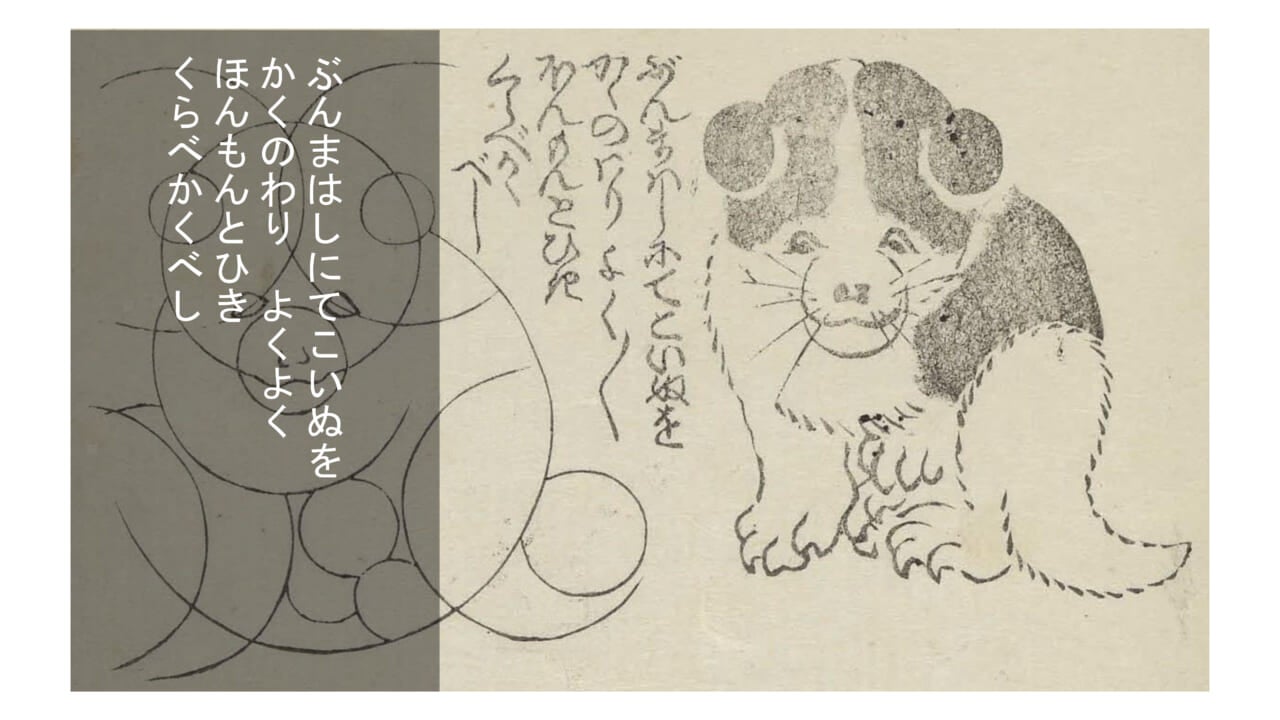 ぶんまはしにてこいぬを
かくのわり よく〱
ほんもんとひき
くらべかく
べし
ぶんまはしにてこいぬを
かくのわり よくよく
ほんもんとひき
くらべかくべし